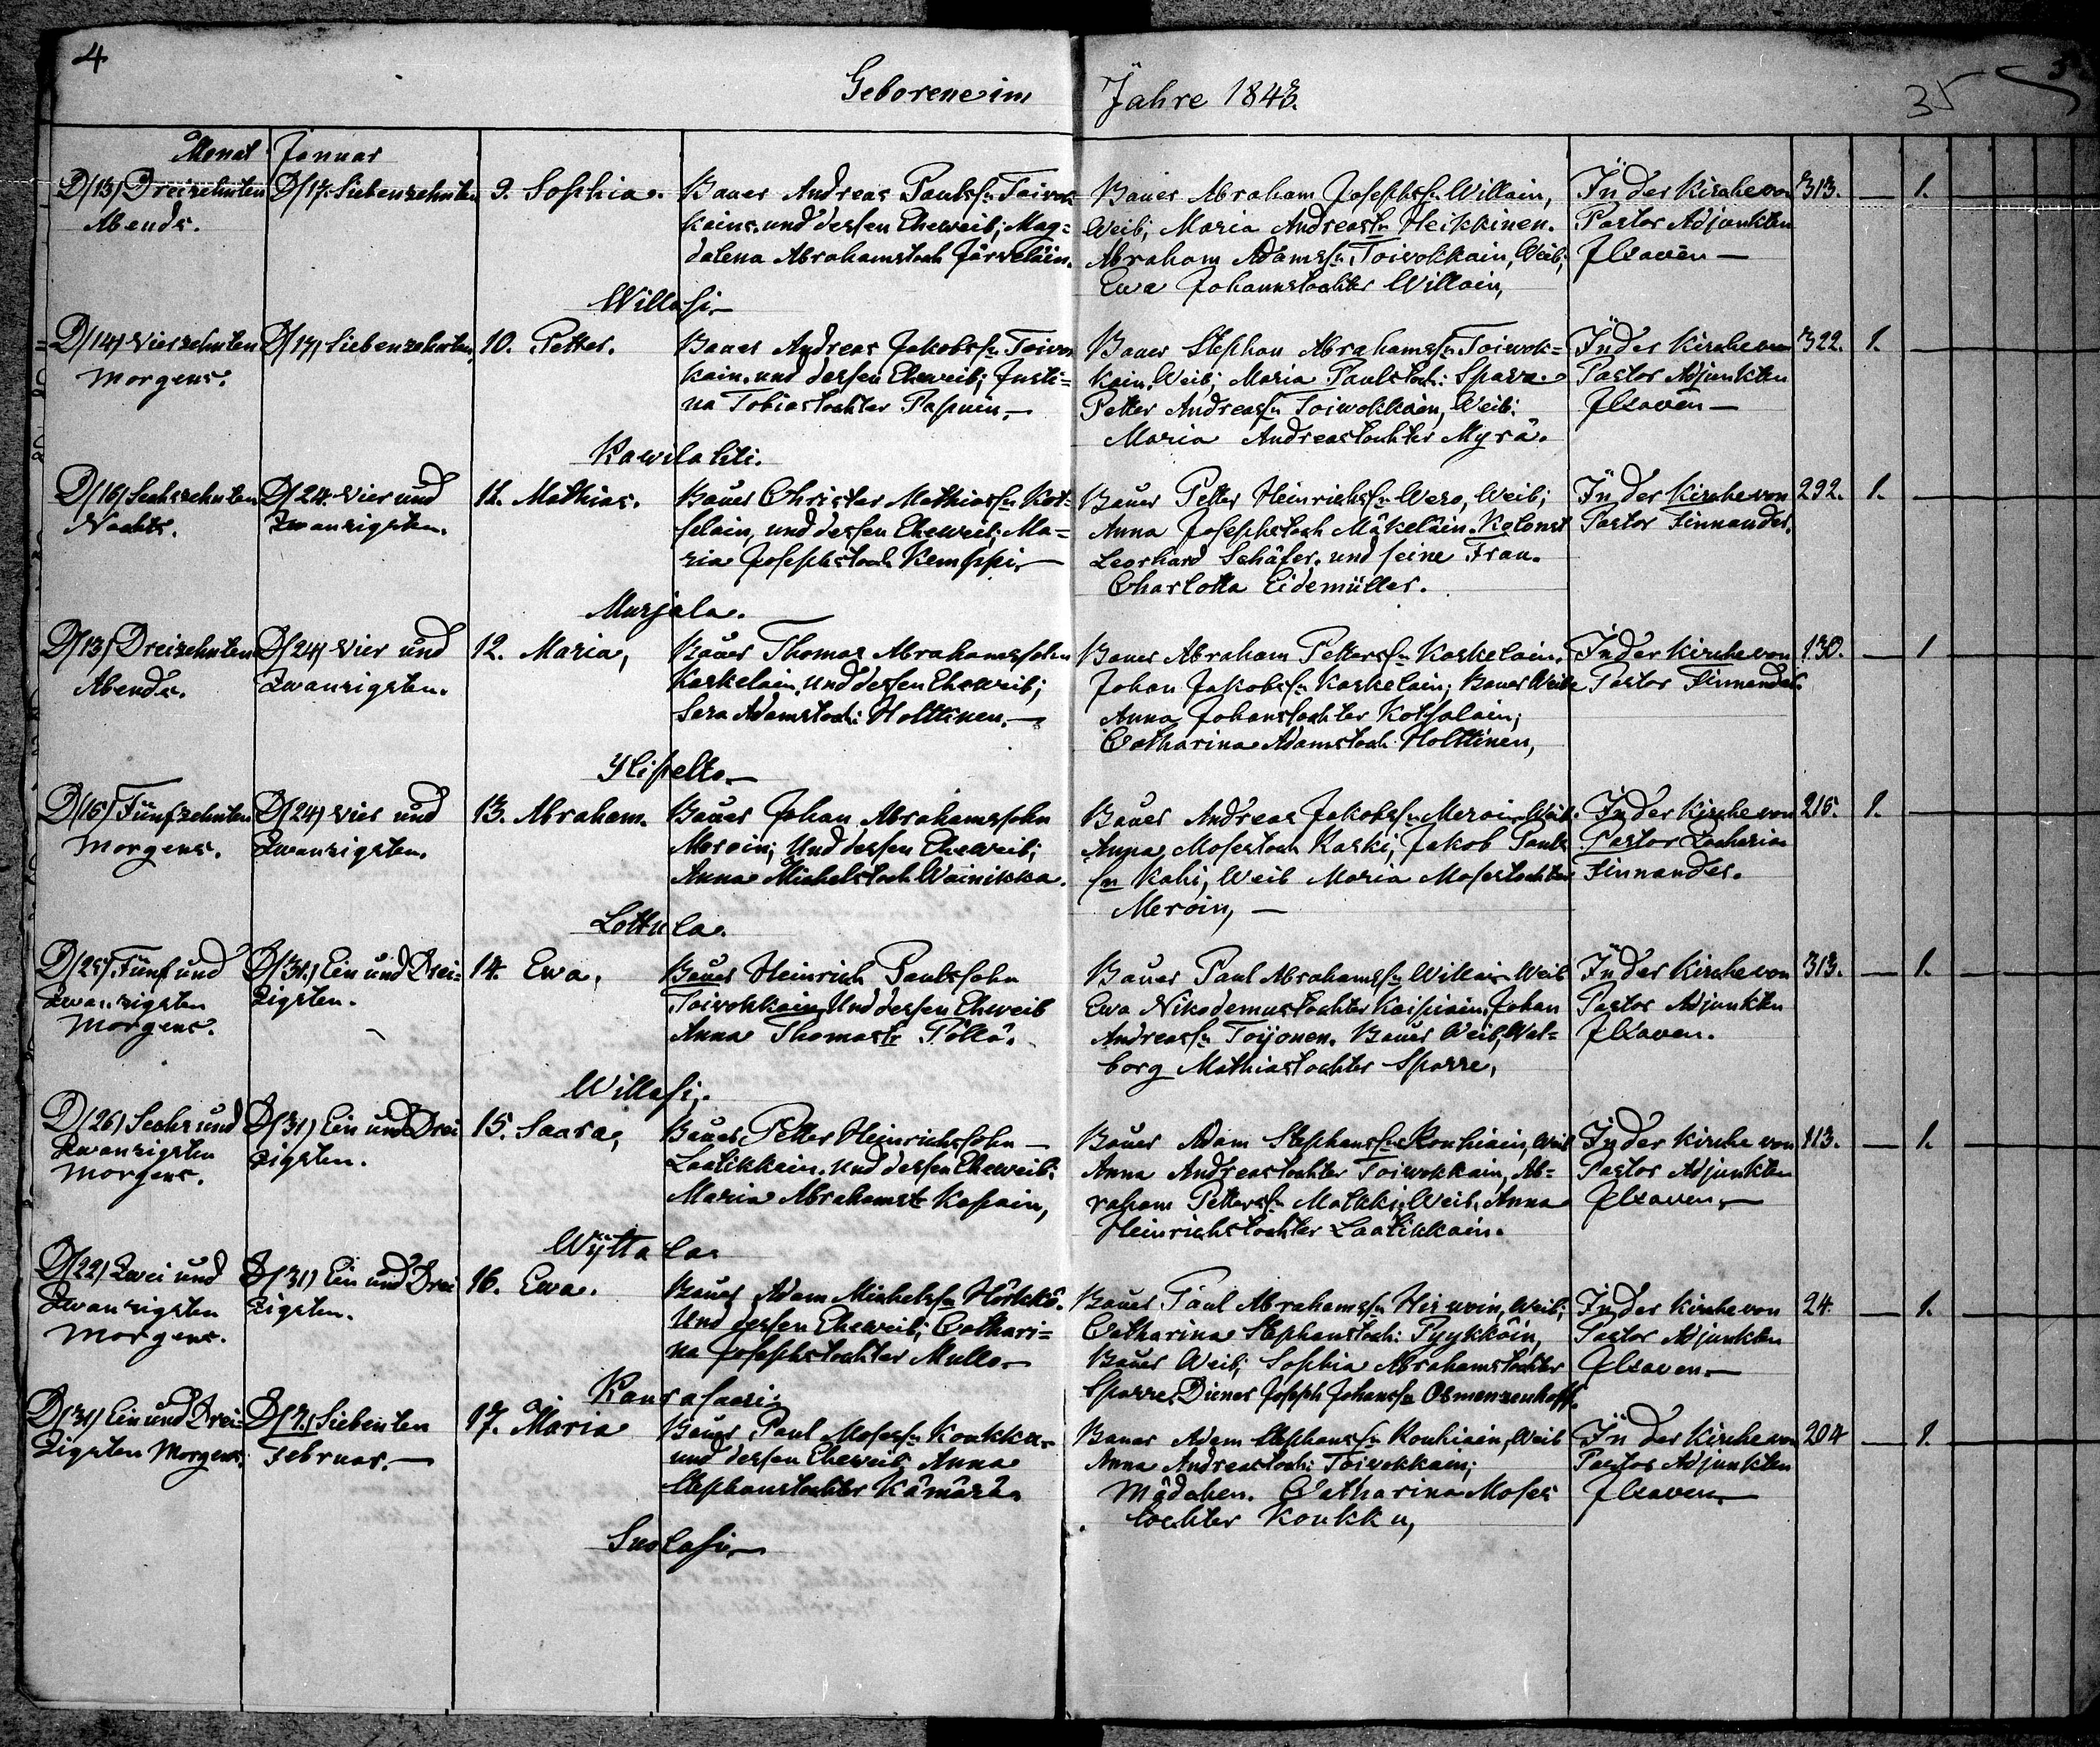 4
Geborene im Jahre 1843.
35
5
Monat Januar
D/13/ Dreizehnten
Abends.
D/17. Siebenzehnten
9. Sophia.
Bauer Andreas Paulssn Toivok
kains. und dessen Eheweib; Mag=
dalena Abrahamstoch Järveläin.
Willasi
Bauer Abraham Josephssn Willain,
Weib; Maria Andreastr Heikkinen.
Abraham Adamssn Toiwokkain, Weib;
Ewa Johannstochter Willain,
In der Kirche von
Pastor Adjunkten
313. — 1.
D/14/ Vierzehnten
Morgens.
D/17/ Siebenzehnten
10. Petter.
Bauer Andreas Jakobssn Toivo
kain. und dessen Eheweib; Justi=
na Tobiastochter
Kawilahti.
Bauer Stephan Abrahamssn Toiwok=
kain. Weib; Maria Paulstoch: Sparre
Petter Andreassn Toiwokkain, Weib;
Maria Andreastochter Myrä.
In der Kirche von
Pastor Adjunkten
322. 1. —
D/16/ Sechszehnten
Nachts.
D/24. Vier und
Zwanzigsten.
11. Mathias.
Bauer Christer Mathiassn Kot=
solain, und dessen Eheweib; Ma=
ria Josephstoch Kemppi
Murjala.
Bauer Petter Heinrichssn Wero, Weib;
Anna Josephstoch Mäkeläin. Kolonst
Leorhard Schäfer. und seine Frau.
Charlotta Eidemüller.
In der Kirche von
Pastor Finnander.
292. 1. —
D/13/ Dreizehnten
Abends.
D/24/ Vier und
Zwanzigsten.
12. Maria,
Bauer Thomas Abrahamssohn
Kaskelain, und dessen Eheweib;
Sara Adamstoch: Holttinen.
Ylipelto
Bauer Abraham Petterssn Kaskelain.
Johan Jakobssn Kaskelain; Bauer Weibe
Anna Johanstochter Kotsalain;
Catharina Adamstoch Holttinen,
In der Kirche von
Pastor Finnander.
130. — 1
D/15/ Fünfzehnten
Morgens.
D/24/ Vier und
Zwanzigsten.
13. Abraham.
Bauer Johan Abrahamssohn
Meroin; Und dessen Eheweib;
Anna Michelstoch Wainikka.
Lottula.
Bauer Andreas Jakobssn Meroin Weib.
Anna Mosestoch Kaski; Jakob Pauls
sn Kahi; Weib Maria Mosestochter
Meroin, —
In der Kirche von
Pastor Zacharias
Finnander.
215. 1. —
D/25/. Fünf und
Zwanzigsten
Morgens.
D/31./ Ein und Drei=
zigsten.
14. Ewa,
Bauer Heinrich Paulssohn
Toiwokkain, Und dessen Eheweib
Anna Thomastr Pöllä.
Willasi;
Bauer Paul Abrahamssn Willain Weib
Ewa Nikodemustochter Kaipiain, Johan
Andreassn Toijonen. Bauer Weib, Wal=
borg Mathiastochter Sparre,
In der Kirche von
Pastor Adjunkten
313. — 1.
D/26/ Sechs und
Zwanzigsten
Morgens.
D/31/ Ein und Drei
zigsten.
15. Saara,
Bauer, Petter Heinrichssohn —
Laatikkain. Und dessen Eheweib;
Maria Abrahamstr Kapain,
Wyttala
Bauer Adam Stephanssn Rouhiain, Weib
Anna Andreastochter Toiwokkain, Ab=
raham Petterssn Malkki, Weib; Anna
Heinrichstochter Laatikkain.
In der Kirche von
Pastor Adjunkten
113. — 1.
D/22/ Zwei und
Zwanzigsten
Morgens.
D/31/ Ein und Drei
zigsten.
16. Ewa.
Bauer Adam Michelssn Hörkkö.
Und dessen Eheweib; Cathari=
na Josephstochter Mullo
Kaurasaari
Bauer Paul Abrahamssn Hirwoin, Weib;
Catharina Stephanstoch: Pyykköin,
Bauer Weib; Sophia Abrahamstochter
Sparre, Diener Joseph Johanssn Osmenzenhoff.
In der Kirche von
Pastor Adjunkten
24. — 1.
D/31/ Ein und Drei=
zigsten Morgens.
D/7./ Siebenten
Februar. —
17. Maria
Bauer Paul Mosessn Koukku
und dessen Eheweib; Anna
Stephanstochter Kämärä
Suolasi
Bauer Adam Stephanssn Rouhiain, Weib
Anna Andreastoch: Toiwokkain;
Mädchen. Catharina Moses
tochter Koukku,
In der Kirche von
Pastor Adjunkten
204 — 1.